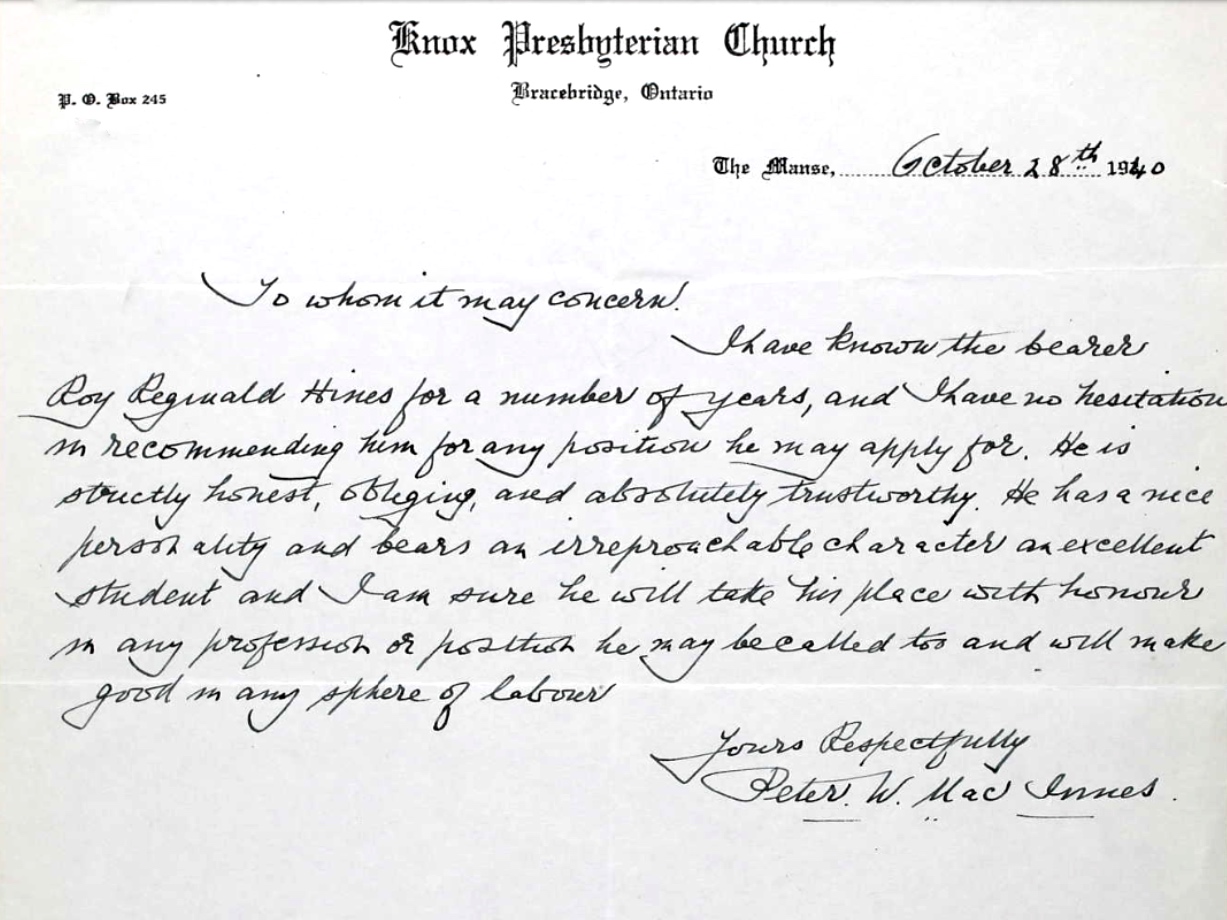 Knox Presbyterian Church
Bracebridge, Ontario
P. O. Box 245
The Manse, October 28th 1940
To whom it may concern.
I have known the bearer
Roy Reginald Hines for a number of years, and I have no hesitation
in recommending him for any position he may apply for. He is
strictly honest, obliging, and absolutely trustworthy. He has a nice
personality and bears an irreproachable character an excellent
student and I am sure he will take his place with honour
in any profession or position he may be called too and will make
good in any sphere of labour
Yours Respectfully
Peter. W. Mac Innes.